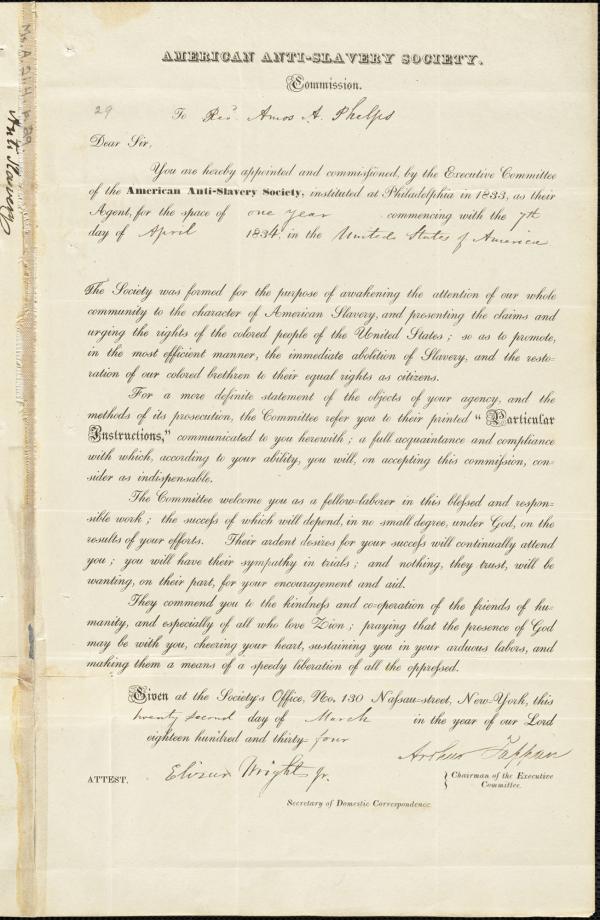 AMERICAN ANTI-SLAVERY SOCIETY.
Commission.
29
To Revd. Amos A. Phelps
Dear Sir,
You are hereby appointed and commissioned, by the Executive Committee
of the American Anti-Slavery Society, instituted at Philadelphia in 1833, as their
Agent, for the space of one year commencing with the 7th
day of April 1834, in the United States of America
The Society was formed for the purpose of awakening the attention of our whole
community to the character of American Slavery, and presenting the claims and
urging the rights of the colored people of the United States; so as to promote,
in the most efficient manner, the immediate abolition of Slavery, and the resto-
ration of our colored brethren to their equal rights as citizens.
For a more definite statement of the objects of your agency, and the
methods of its prosecution, the Committee refer you to their printed "Particular
Instructions," communicated to you herewith; a full acquaintance and compliance
with which, according to your ability, you will, on accepting this commission, con-
sider as indispensable.
The Committee welcome you as a fellow-laborer in this blessed and respon-
sible work; the success of which will depend, in no small degree, under God, on the
results of your efforts. Their ardent desires for your success will continually attend
you; you will have their sympathy in trials; and nothing, they trust, will be
wanting, on their part, for your encouragement and aid.
They commend you to the kindness and co-operation of the friends of hu-
manity, and especially of all who love Zion; praying that the presence of God
may be with you, cheering your heart, sustaining you in your arduous labors, and
making them a means of a speedy liberation of all the oppressed.
Given at the Society's Office, No. 130 Nassau-street, New-York, this
twenty second day of March in the year of our Lord
eighteen hundred and thirty-four
Arthur Tappan
Chairman of the Executive
Committee.
ATTEST. Elizur Wright Jr.
Secretary of Domestic Correspondence.
Anti Slavery